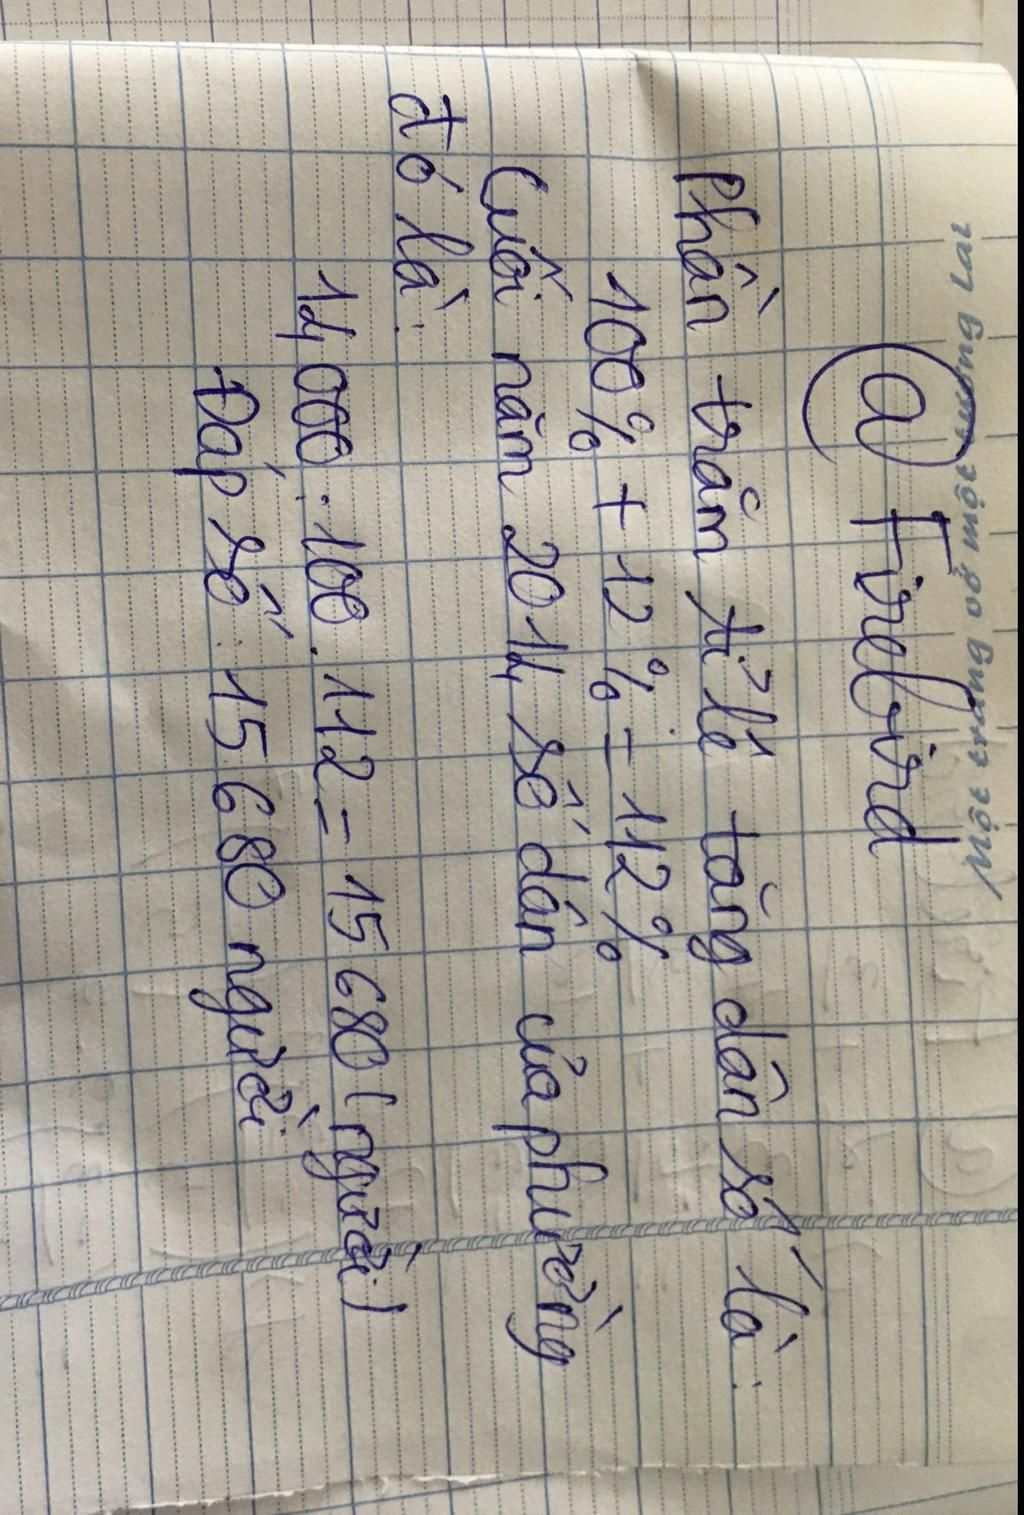 Một trang vở một tương lai
@ Firebird
Phần trăm tỉ lê tăng dân số là:
100% + 12% = 112%
Cuối năm 2014 số dân của phường
đó là:
14000 : 100 . 112 = 15680 (người)
Đáp số : 15680 người